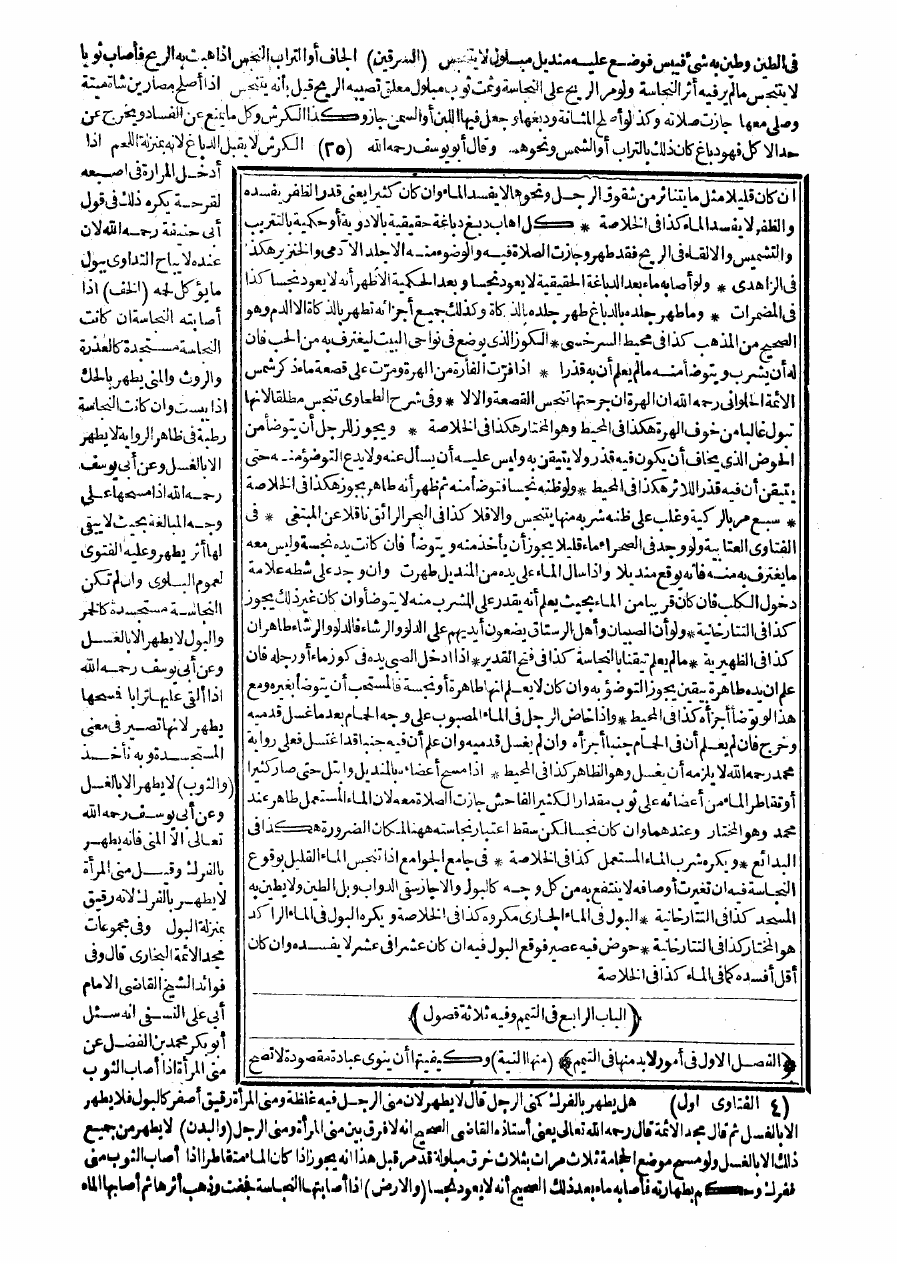 فى الطين وطين به شئ فيبس فوضع عليه منديل مبلول لا يتنجس (السرقين) الجاف أو التراب النجس اذا هبت به الريح فأصاب ثوبا
لا يتنجس مالم ير فيه أثر النجاسة ولو مر الريح على النجاسة وثمت ثوب مبلول معلق تصيبه الريح قيل بأنه يتنجس اذا أصلح مصارين شاة ميتة
وصلى معها جازت صلاته وكذلوأصلح المثانة ودبغها وجعل فيها اللبن أو السمن جاز وكذا الكرش وكل ما يمنع عن الفساد ويخرج عن
حد الاكل فهو دباغ كان ذلك بالتراب أو الشمس ونحوهما وقال أبو يوسف رحمه الله (٢٥) الكرش لا يقبل الدباغ لانه بمنزلة اللحم اذا
أدخل المرارة فى اصبعه
لقرحة يكره ذلك فى قول
أبى حنيفة رحمه الله لان
عنده لا يباح التداوى ببول
ما يؤكل لحمه (الخف) اذا
أصابته النجاسة ان كانت
النجاسة مستجدة كالعذرة
والروث والمنى يطهر بالحك
اذا يبست وان كانت النجاسة
رطبة فى ظاهر الرواية لا يطهر
الا بالغسل وعن أبى يوسف
رحمه الله اذا مسحها على
وجه المبالغة بحيث لا يبقى
لها أثر يطهر وعليه الفتوى
لعموم البلوى وان لم تكن
النجاسة مستجسدة كالخمر
والبول لا يطهر الا بالغسل
وعن أبى يوسف رحمه الله
اذا ألقى عليها ترابا فمسحها
يطهر لانها تصير فى معنى
المستجسدة وبه نأخذ
(والثوب) لا يطهر الا بالغسل
وعن أبى يوسف رحمه الله
تعالى الا المنى فانه يطهر
بالفرك وقيل منى المرأة
لا يطهر بالفرك لانه رقيق
بمنزلة البول وفى مجموعات
مجد الائمة البخارى قال وفى
فوائد الشيخ القاضى الامام
أبى على النسفى انه سئل
أبو بكر محمد بن الفضل عن
منى المرأة اذا أصاب الثوب
ان كان قليلا مثل ما يتناثر من شقوق الرجل ونحوها لا يفسد الماء وان كان كثيرا يعنى قدر الظفر يفسده
والظفر لا يفسد الماء كذا فى الخلاصة * كل اهاب دبغ دباغة حقيقية بالادوية أو حكمية بالتتريب
والتشميس والالقاء فى الريح فقد طهر وجازت الصلاة فيه والوضوء منه الا جلد الآدمى والخنزير هكذا
فى الزاهدى * ولو أصابه ماء بعد الدباغة الحقيقية لا يعود نجسا وبعد الحكمية الأظهر أنه لا يعود نجسا كذا
فى المضمرات * وما طهر جلده بالدباغ طهر جلده بالذكاة وكذلك جميع أجزائه تطهر بالذكاة الا الدم وهو
الصحيح من المذهب كذا فى محيط السرخسى * الكوز الذى يوضع فى نواحى البيت ليغترف به من الحب فان
له أن يشرب ويتوضأ منه مالم يعلم أن به قذرا * اذا فرت الفأرة من الهرة ومرت على قصعة ماء ذكر شمس
الائمة الحلوانى رحمه الله ان الهرة ان جرحتها تنجس القصعة والا لا * وفى شرح الطحاوى تنجس مطلقا لانها
تبول غالبا من خوف الهرة هكذا فى المحيط وهو المختار هكذا فى الخلاصة * ويجوز للرجل أن يتوضأ من
الحوض الذى يخاف أن يكون فيه قذر ولا يتيقن به وليس عليه أن يسأل عنه ولا يدع التوضؤ منه حتى
يتيقن أن فيه قذر اللاثر هكذا فى المحيط * ولو ظنه نجسا فتوضأ منه ثم ظهر أنه طاهر يجوز هكذا فى الخلاصة
* سبع مر بالركية وغلب على ظنه شربه منها يتنجس والا فلا كذا فى البحر الرائق ناقلا عن المبتغى * فى
الفتاوى العتابية ولو وجد فى الصحراء ماء قليلا يجوز أن يأخذ منه ويتوضأ فان كانت يده نجسة وليس معه
ما يغترف به منه فانه يوقع منديلا واذا سال الماء على يده من المنديل طهرت وان وجد على شطه علامة
دخول الكلب فان كان قريبا من الماء بحيث يعلم أنه يقدر على الشرب منه لا يتوضأ وان كان غير ذلك يجوز
كذا فى التتارخانية * ولو أن الصبيان وأهل الرستاق يضعون أيديهم على الدلو والرشاء فالدلو والرشاء طاهران
كذا فى الظهيرية * مالم يعلم تيقنا بالنجاسة كذا فى فتح القدير * اذا ادخل الصبى يده فى كوز ماء أو رجله فان
علم ان يده طاهرة بيقين يجوز التوضؤ به وان كان لا يعلم انها طاهرة أو نجسة فالمستحب أن يتوضأ بغيره ومع
هذا لو توضأ أجزأه كذا فى المحيط * واذا خاض الرجل فى الماء المصبوب على وجه الحمام بعد ما غسل قدميه
وخرج فان لم يعلم أن فى الحمام جنبا أجزأه وان لم يغسل قدميه وان علم أن فيه جنبا قد اغتسل فعلى رواية
محمد رحمه الله لا يلزمه أن يغسل وهو الظاهر كذا فى المحيط * اذا مسح أعضاءه بالمنديل وابتل حتى صار كثيرا
أو تقاطر الماء من أعضائه على ثوب مقدار الكثير الفاحش جازت الصلاة معه لان الماء المستعمل طاهر عند
محمد وهو المختار وعندهما وان كان نجسا لكن سقط اعتبار نجاسته ههنا لمكان الضرورة هكذا فى
البدائع * ويكره شرب الماء المستعمل كذا فى الخلاصة * فى جامع الجوامع اذا تنجس الماء القليل بوقوع
النجاسة فيه ان تغيرت أوصافه لا ينتفع به من كل وجه كالبول والا جاز سقى الدواب وبل الطين ولا يطين به
المسجد كذا فى التتارخانية * البول فى الماء الجارى مكروه كذا فى الخلاصة ويكره البول فى الماء الراكد
هو المختار كذا فى التتارخانية * حوض فيه عصير فوقع البول فيه ان كان عشرا فى عشر لا يفسده وان كان
أقل أفسده كما فى الماء كذا فى الخلاصة
(الباب الرابع فى التيمم وفيه ثلاثة فصول)
(الفصل الاول فى أمور لابد منها فى التيمم) (منها النية) وكيفيتها أن ينوى عبادة مقصودة لا تصح
(٤ الفتاوى اول) هل يطهر بالفرك كمنى الرجل قال لا يطهر لان منى الرجل فيه غلظة ومنى المرأة رقيق أصفر كالبول فلا يطهر
الا بالغسل ثم قال مجد الائمة قال رحمه الله تعالى يعنى أستاذه القاضى الصحيح انه لا فرق بين منى المرأة ومنى الرجل (والبدن) لا يطهر من جميع
ذلك الا بالغسل ولو مسح موضع الحجامة ثلاث مرات بثلاث خرق مبلولة قد مر قبل هذا انه يجوز اذا كان الماء متقاطرا اذا أصاب الثوب منى
ففرك وحكم بطهارته فأصابه ماء بعد ذلك الصحيح أنه لا يعود نجسا (والارض) اذا أصابتها النجاسة فجفت وذهب أثرها ثم أصابها الماء